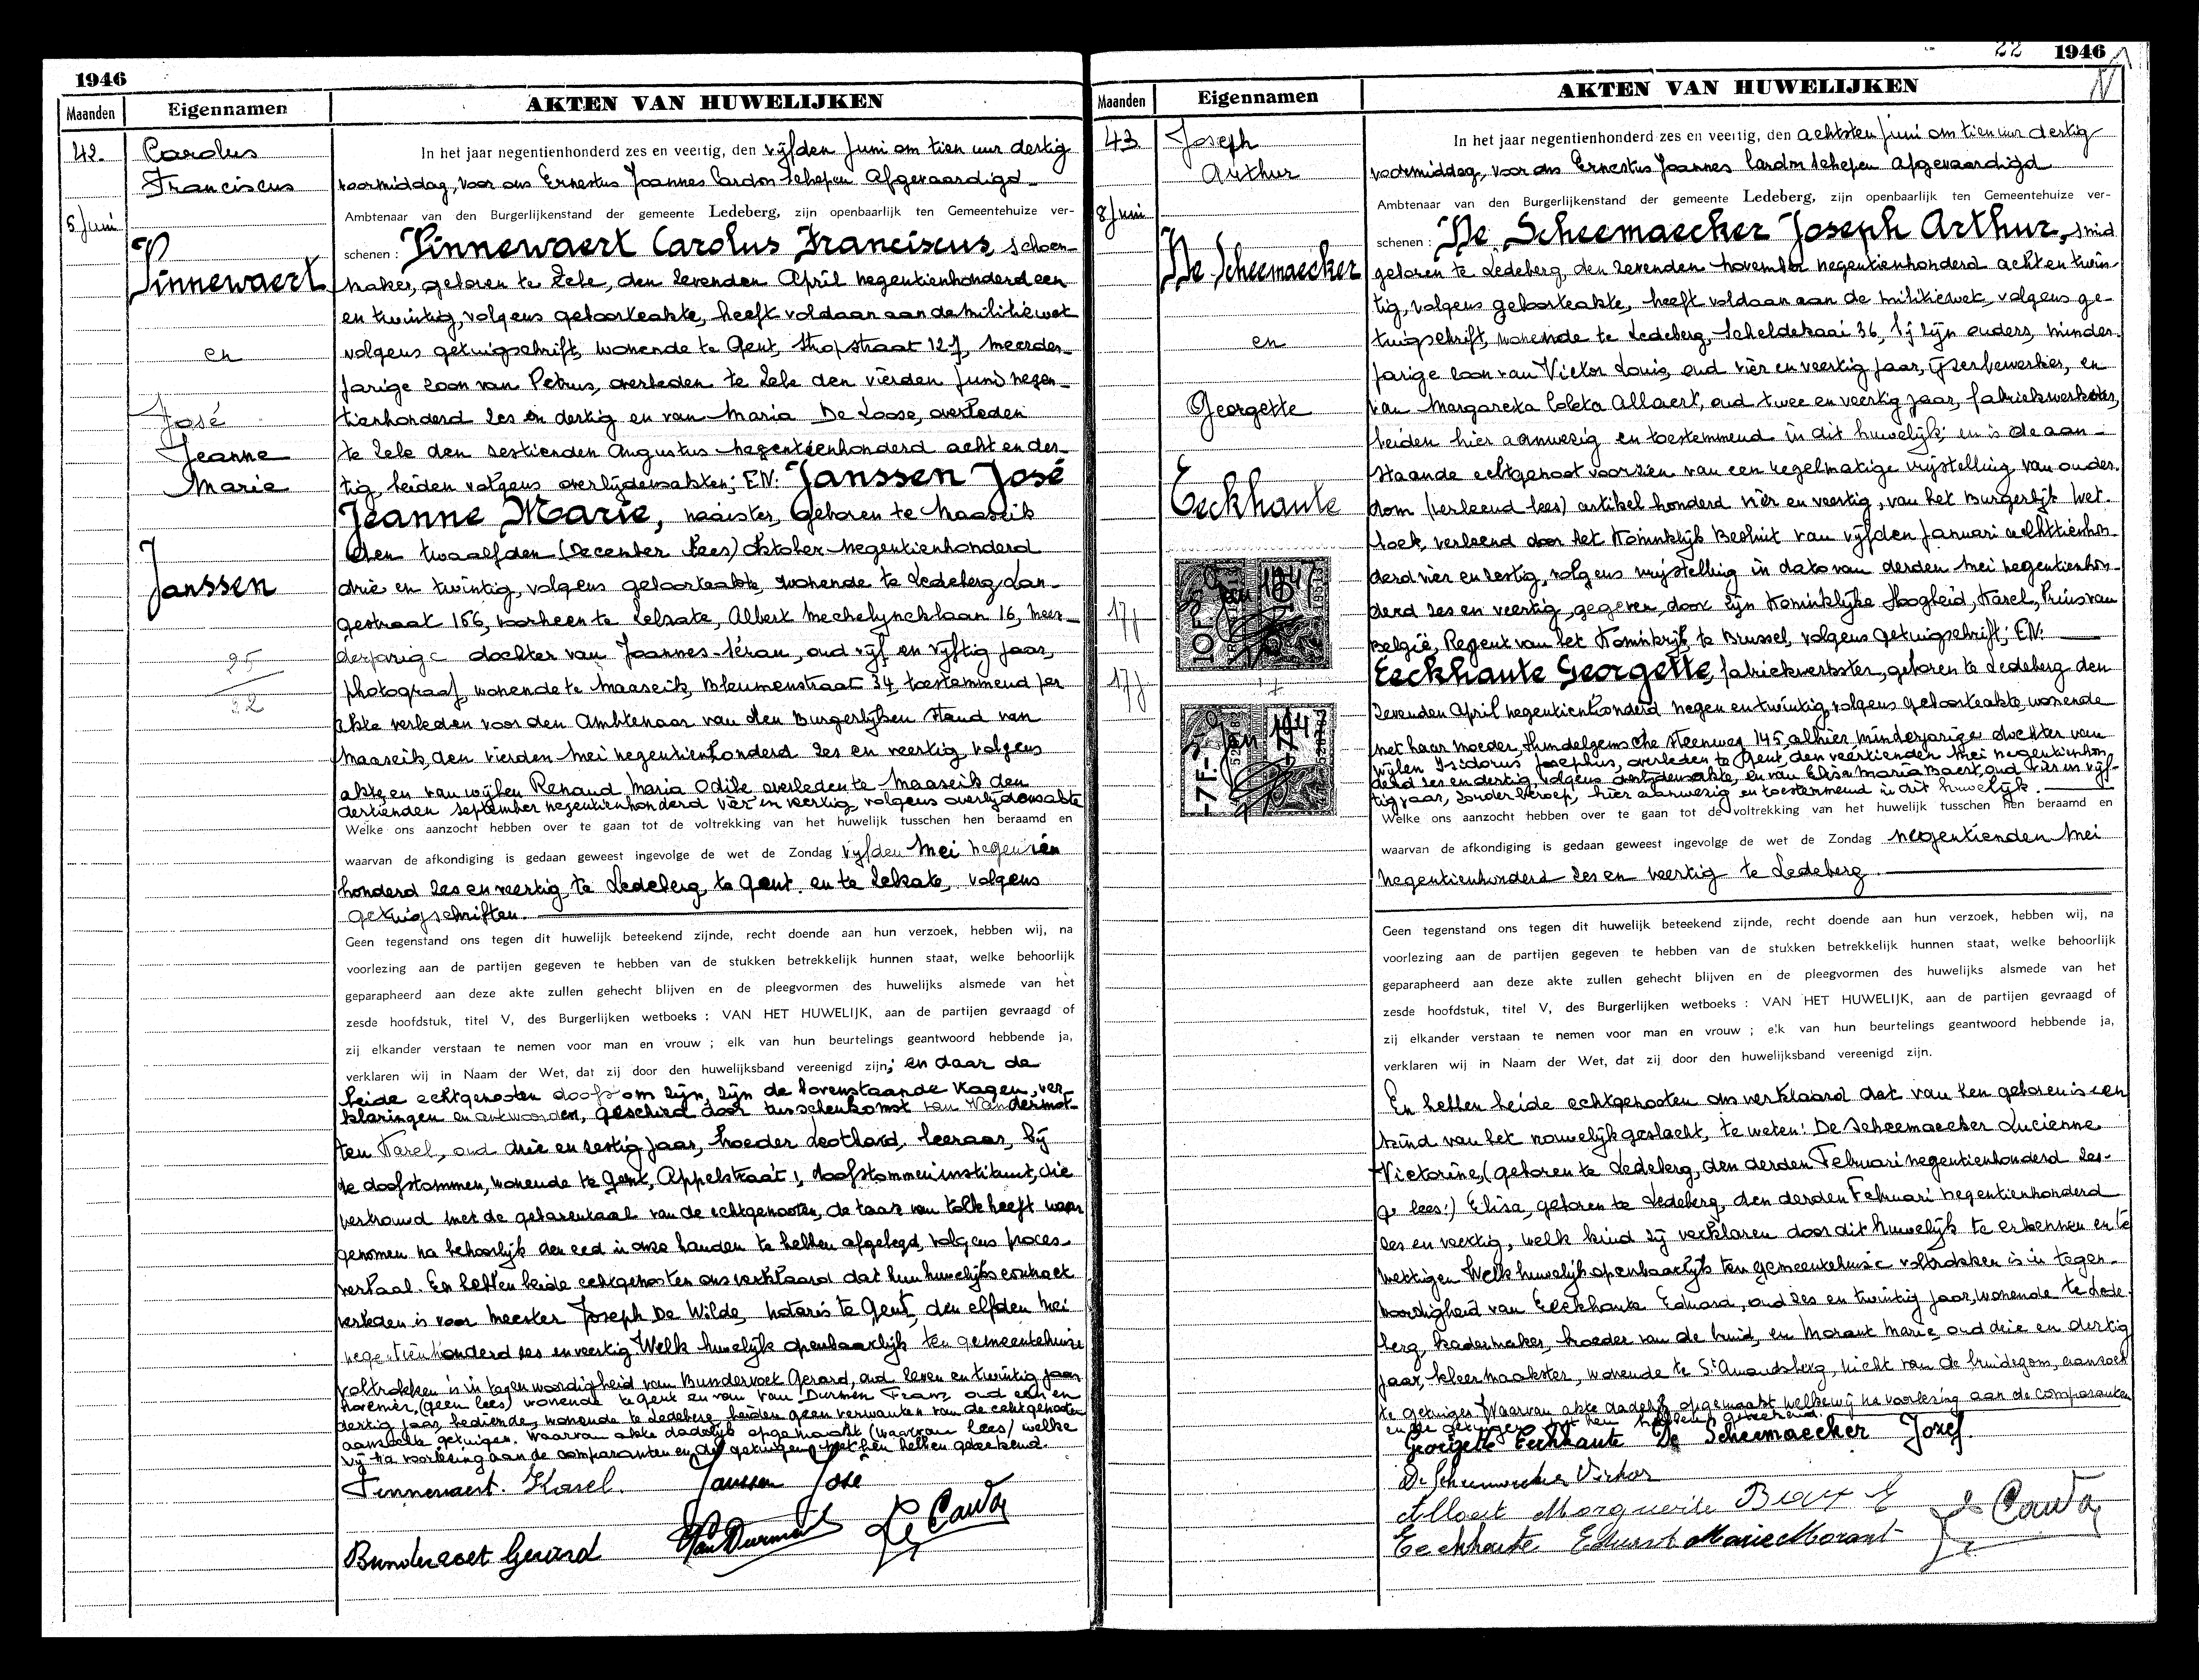 1946
Maanden
Eigennamen
AKTEN VAN HUWELIJKEN
42.
Carolus
Franciscus
5 Juni
Pinnewaert
en
José
Jeanne
Marie
Janssen
25
22
In het jaar negentienhonderd zes en veertig, den vijfden Juni om tien uur dertig
voormiddag, voor ons Ernestus Joannes Cardon Schepen Afgevaardigd
Ambtenaar van den Burgerlijkenstand der gemeente Ledeberg, zijn openbaarlijk ten Gemeentehuize ver-
schenen : Pinnewaert Carolus Franciscus, schoen-
maker, geboren te Zele, den zevenden April negentienhonderd een
en twintig, volgens geboorteakte, heeft voldaan aan de militiewet
volgens getuigschrift, wonende te Gent, Hopstraat 127, meerder-
jarige zoon van Petrus, overleden te Zele den vierden Juni negen-
tienhonderd zes en dertig en van Maria De Loose, overleden
te Zele den zestienden Augustus negentienhonderd acht en der-
tig, beiden volgens overlijdensakten; EN: Janssen José
Jeanne Marie, naaister, geboren te Maaseik
den twaalfden (December lees) Oktober negentienhonderd
drie en twintig, volgens geboorteakte, wonende te Ledeberg, Lan-
gestraat 166, voorheen te Zelzate, Albert Mechelyncklaan 16, meer-
derjarige dochter van Joannes-Téran, oud vijf en vijftig jaar,
photograaf, wonende te Maaseik, Bleumenstraat 34, toestemmend per
akte verleden voor den Ambtenaar van den Burgerlijken Stand van
Maaseik, den vierden Mei negentienhonderd zes en veertig, volgens
akte en van wijlen Renaud Maria Odile overleden te Maaseik den
dertienden September negentienhonderd vier en veertig volgens overlijdensakte
Welke ons aanzocht hebben over te gaan tot de voltrekking van het huwelijk tusschen hen beraamd en
waarvan de afkondiging is gedaan geweest ingevolge de wet de Zondag vijfden Mei negentien
honderd zes en veertig te Ledeberg, te Gent en te Zelzate, volgens
getuigschriften.
Geen tegenstand ons tegen dit huwelijk beteekend zijnde, recht doende aan hun verzoek, hebben wij, na
voorlezing aan de partijen gegeven te hebben van de stukken betrekkelijk hunnen staat, welke behoorlijk
geparapheerd aan deze akte zullen gehecht blijven en de pleegvormen des huwelijks alsmede van het
zesde hoofdstuk, titel V, des Burgerlijken wetboeks : VAN HET HUWELIJK, aan de partijen gevraagd of
zij elkander verstaan te nemen voor man en vrouw ; elk van hun beurtelings geantwoord hebbende ja,
verklaren wij in Naam der Wet, dat zij door den huwelijksband vereenigd zijn; en daar de
beide echtgenoten doofstom zijn, zijn de bovenstaande vragen, ver-
klaringen en antwoorden, geschied door tusschenkomst van Vandermot-
ten Karel, oud drie en zestig jaar, broeder Leothard, leeraar, bij
de doofstommen, wonende te Gent, Appelstraat 1, doofstommeninstituut, die
vertrouwd met de gebarentaal van de echtgenooten, de taak van tolk heeft waar-
genomen na behoorlijk den eed in onze handen te hebben afgelegd, volgens proces-
verbaal. En hebben beide echtgenooten ons verklaard dat hun huwelijkscontract
verleden is voor meester Joseph De Wilde, notaris te Gent, den elfden Mei
negentienhonderd zes en veertig Welk huwelijk openbaarlijk ten gemeentehuize
voltrokken is in tegenwoordigheid van Bundervoet Gerard, oud zeven en twintig jaar
hovenier, (geen lees) wonende te Gent en van Van Durmen Franz oud een en
dertig jaar, bediende, wonende te Ledeberg, beiden geen verwanten van de echtgenooten
aanzochte getuigen. Waarvan akte dadelijk opgemaakt (waarvan lees) welke
wij na voorlezing aan de comparanten en de getuigen met hen hebben geteekend.
Pinnewaert. Karel. Janssen José
Bundervoet Gerard VanDurmen

22 1946
Maanden
Eigennamen
AKTEN VAN HUWELIJKEN
43
Joseph
Arthur
8 Juni
De Scheemaecker
en
Georgette
Eeckhaute
10 F
1947
7 F
1947
In het jaar negentienhonderd zes en veertig, den achtsten Juni om tien uur dertig
voormiddag, voor ons Ernestus Joannes Cardon Schepen Afgevaardigd
Ambtenaar van den Burgerlijkenstand der gemeente Ledeberg, zijn openbaarlijk ten Gemeentehuize ver-
schenen : De Scheemaecker Joseph Arthur, smid
geboren te Ledeberg, den zevenden november negentienhonderd acht en twin-
tig, volgens geboorteakte, heeft voldaan aan de militiewet, volgens ge-
tuigschrift, wonende te Ledeberg, Scheldekaai 36, bij zijn ouders, minder-
jarige zoon van Victor Louis, oud vier en veertig jaar, ijzerbewerker, en
van Margareta Coleta Allaert, oud twee en veertig jaar, fabriekwerkster,
beiden hier aanwezig en toestemmend in dit huwelijk; en is de aan-
staande echtgenoot voorzien van een regelmatige vrijstelling van ouder-
dom (verleend lees) artikel honderd vier en veertig, van het Burgerlijk Wet-
boek, verleend door het Koninklijk Besluit van vijfden Januari achttienhon-
derd vier en zestig, volgens vrijstelling in dato van derden Mei negentienhon-
derd zes en veertig, gegeven door Zijn Koninklijke Hoogheid, Karel, Prins van
België, Regent van het Koninkrijk, te Brussel, volgens getuigschrift; EN:
Eeckhaute Georgette, fabriekwerkster, geboren te Ledeberg den
zevenden April negentienhonderd negen en twintig, volgens geboorteakte, wonende
met haar moeder, Hundelgemsche steenweg 145, alhier, minderjarige dochter van
wijlen Isidorus Josephus, overleden te Gent, den veertienden Mei negentienhon-
derd zes en dertig, volgens overlijdensakte, en van Elisa Maria Baert, oud vier en vijf-
tig jaar, zonder beroep, hier aanwezig en toestemmend in dit huwelijk.
Welke ons aanzocht hebben over te gaan tot de voltrekking van het huwelijk tusschen hen beraamd en
waarvan de afkondiging is gedaan geweest ingevolge de wet de Zondag negentienden Mei
negentienhonderd zes en veertig te Ledeberg
Geen tegenstand ons tegen dit huwelijk beteekend zijnde, recht doende aan hun verzoek, hebben wij, na
voorlezing aan de partijen gegeven te hebben van de stukken betrekkelijk hunnen staat, welke behoorlijk
geparapheerd aan deze akte zullen gehecht blijven en de pleegvormen des huwelijks alsmede van het
zesde hoofdstuk, titel V, des Burgerlijken wetboeks : VAN HET HUWELIJK, aan de partijen gevraagd of
zij elkander verstaan te nemen voor man en vrouw ; elk van hun beurtelings geantwoord hebbende ja,
verklaren wij in Naam der Wet, dat zij door den huwelijksband vereenigd zijn.
En hebben beide echtgenooten ons verklaard dat van hen geboren is een
kind van het vrouwelijk geslacht, te weten: De Scheemaecker Lucienne
Victorine, (geboren te Ledeberg, den derden Februari negentienhonderd zes-
lees:) Elisa, geboren te Ledeberg, den derden Februari negentienhonderd
zes en veertig, welk kind zij verklaren door dit huwelijk te erkennen en te
wettigen Welk huwelijk openbaarlijk ten gemeentehuize voltrokken is in tegen-
woordigheid van Eeckhaute Eduard, oud zes en twintig jaar, wonende te Lede-
berg, kadermaker, broeder van de bruid, en Morant Marie, oud drie en dertig
jaar, kleermaakster, wonende te St Amandsberg, nicht van de bruidegom, aanzoch-
te getuigen Waarvan akte dadelijk opgemaakt welke wij na voorlezing aan de comparanten
en de getuigen met hen hebben geteekend.
Georgette Eeckhaute De Scheemaecker Jozef.
De Scheemaecker Victor
Allaert Marguerite Baert E
Eeckhaute Eduard Marie Morant